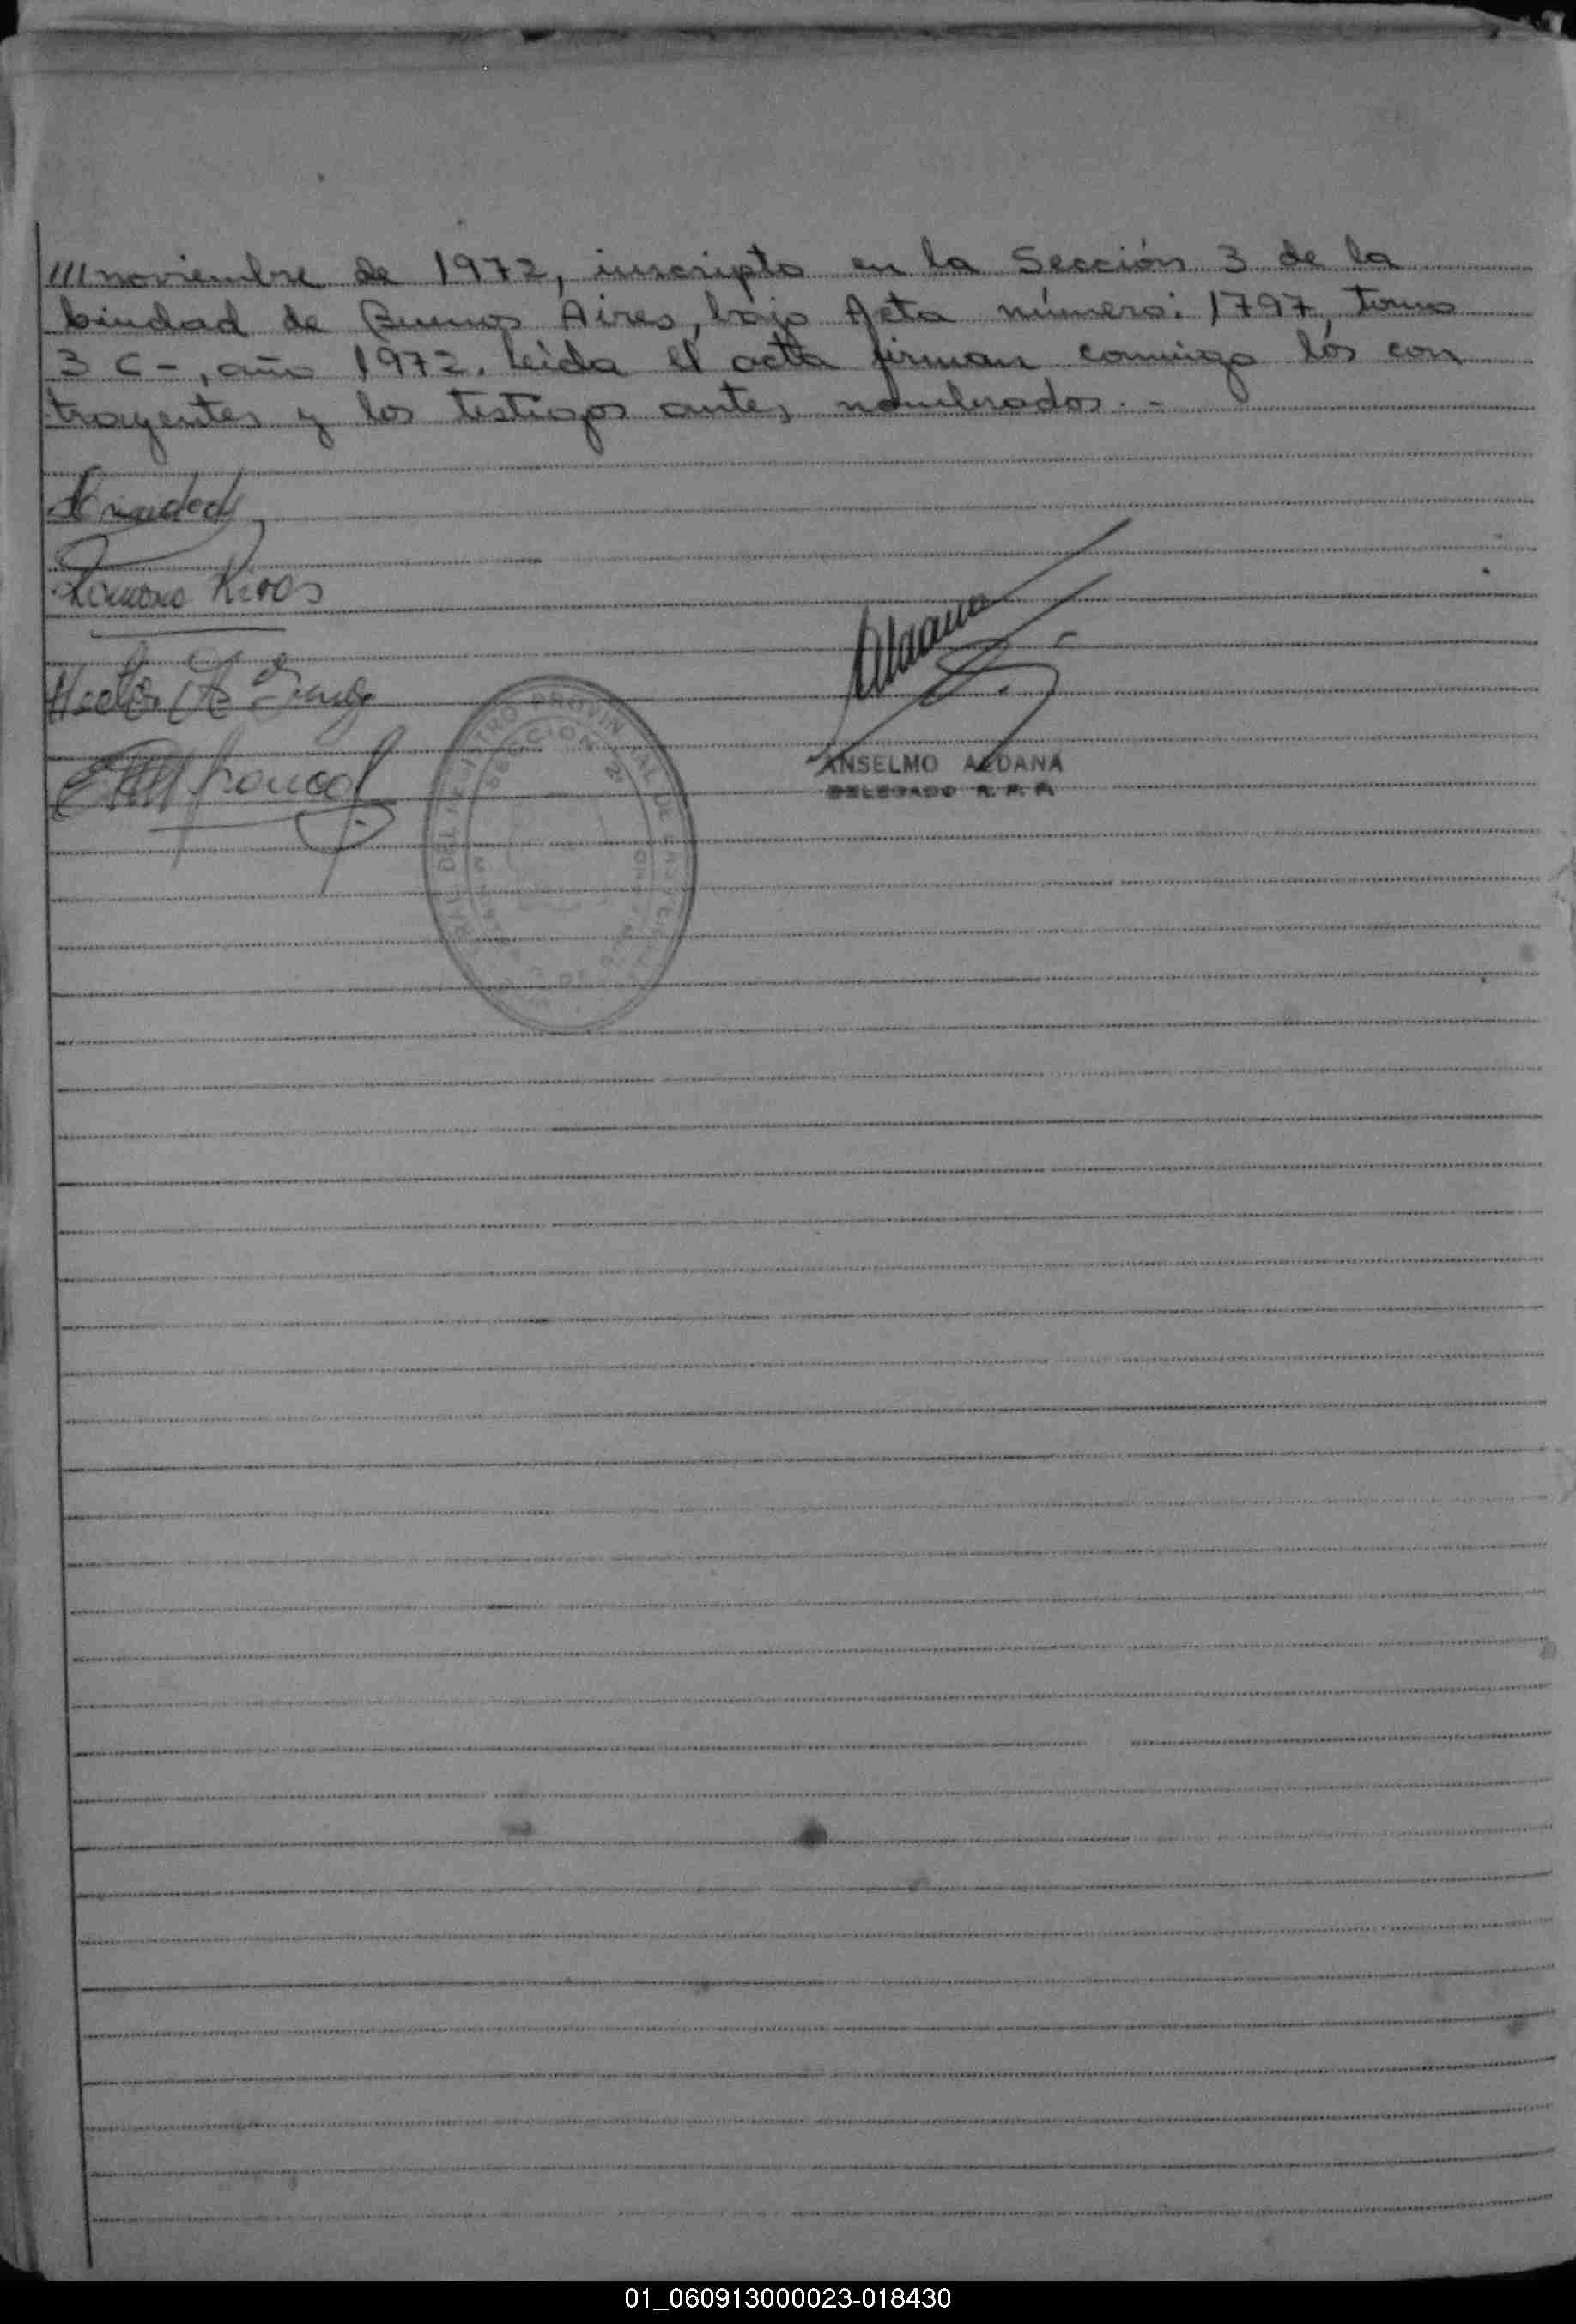 ///noviembre de 1972, inscripto en la Sección 3 de la
Ciudad de Buenos Aires, bajo Acta número: 1797, tomo
3 C-, año 1972. Leida el acta firman conmigo los con
trayentes y los testigos antes nombrados. -
Romero Rivas
Hector
Aldana
ANSELMO ALDANA
DELEGADO R. P. P.
REGISTRO PROVINCIAL DE LAS
SECCION
01_060913000023-018430